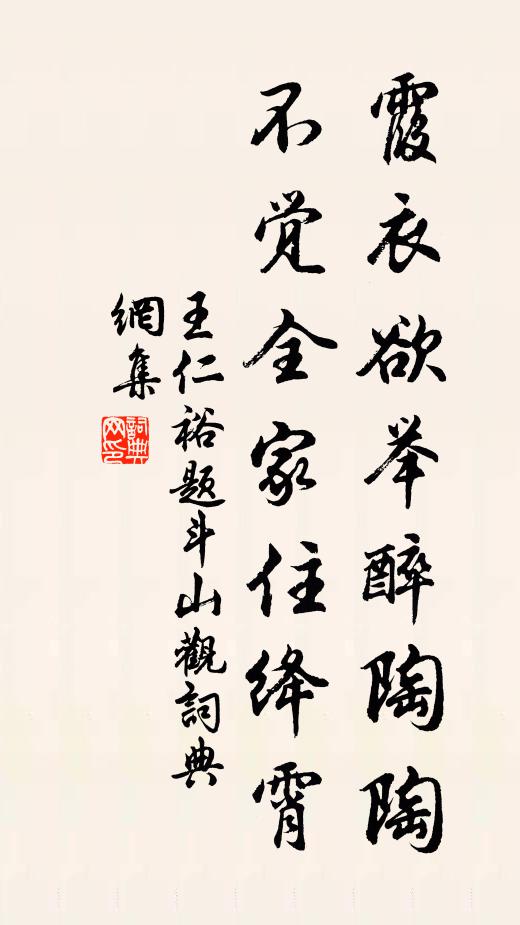 霞衣欲举醉陶陶
不觉全家住绛霄
王仁裕题斗山觀詞典
網集
詞典
网印